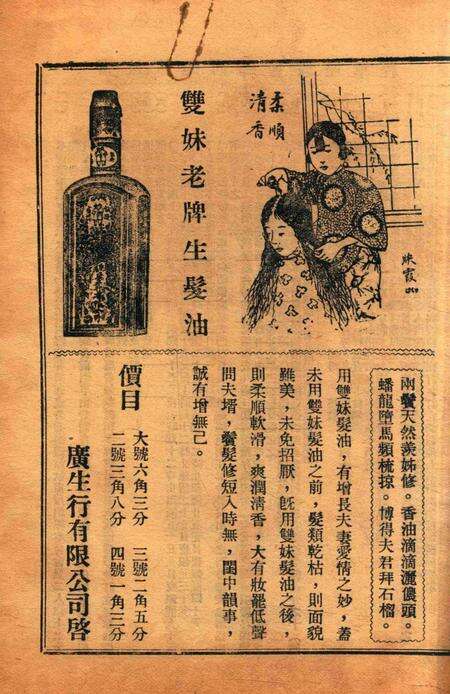 柔順
清香
雙妹老牌生髮油
映霞
兩鬢天然羨姊修。香油滴滴灑儂頭。
蟠龍墮馬頻梳掠。博得夫君拜石榴。
用雙妹髮油，有增長夫妻愛情之妙，蓋
未用雙妹髮油之前，髮類乾枯，則面貌
雖美，未免招厭，既用雙妹髮油之後，
則柔順軟滑，爽潤清香，大有妝罷低聲
問夫壻，鬢髮修短入時無，閨中韻事，
誠有增無已。
價目
大號六角三分 三號二角五分
二號三角八分 四號一角三分
廣生行有限公司啓